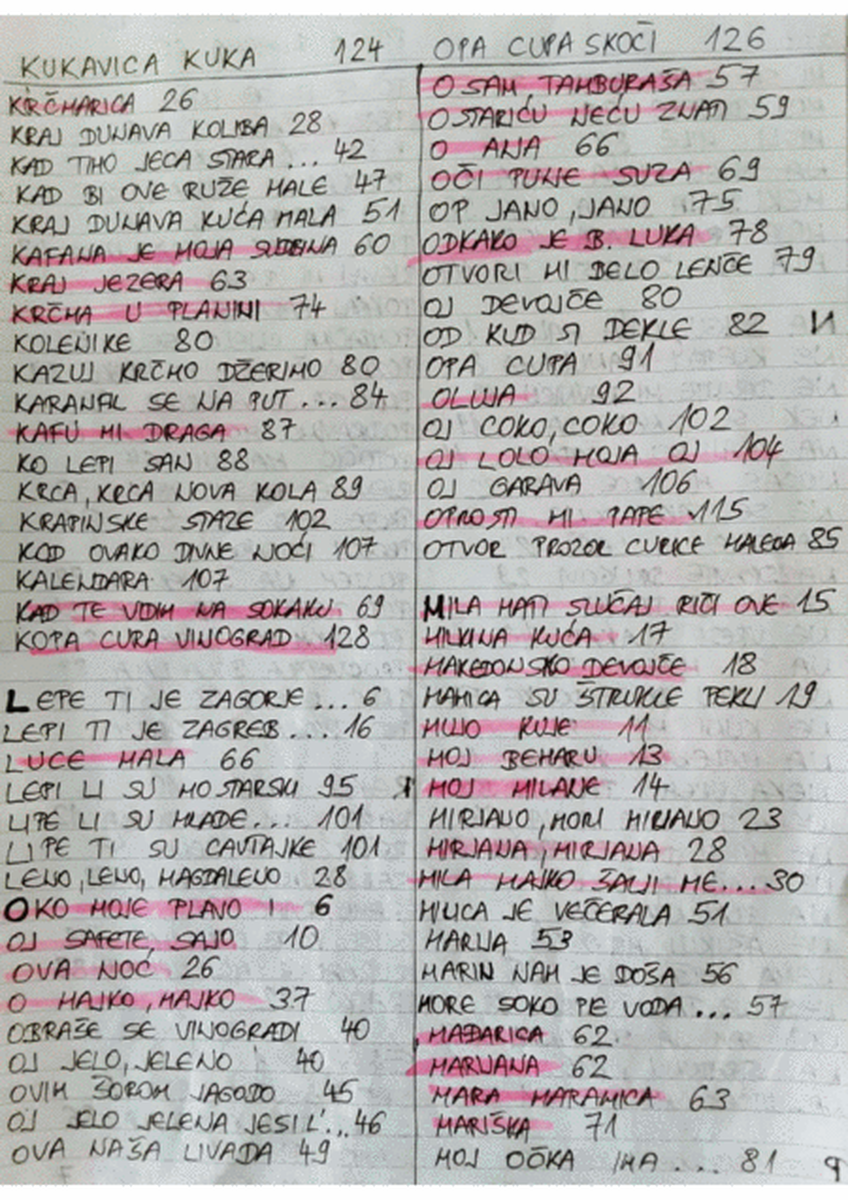 KUKAVICA KUKA 124
KRČMARICA 26
KRAJ DUNAVA KOLIBA 28
KAD TIHO JECA STARA ... 42
KAD BI OVE RUŽE MALE 47
KRAJ DUNAVA KUĆA MALA 51
KAFANA JE MOJA SUDBINA 60
KRAJ JEZERA 63
KRČMA U PLANINI 74
KOLENIKE 80
KAZUJ KRČMO DŽERIMO 80
KARANFIL SE NA PUT ... 84
KAFU MI DRAGA 87
KO LEPI SAN 88
KRCA, KRCA NOVA KOLA 89
KRAPINSKE STAZE 102
KOD OVAKO DIVNE NOĆI 107
KALENDARA 107
KAD TE VIDIM NA SOKAKU 69
KOPA CURA VINOGRAD 128
LEPE TI JE ZAGORJE ... 6
LEPI TI JE ZAGREB ... 16
LUCE MALA 66
LEPI LI SU MOSTARSKI 95
LIPE LI SU MLADE ... 101
LIPE TI SU CAVTAJKE 101
LENO, LENO, MAGDALENO 28
OKO MOJE PLAVO I 6
OJ SAFETE, SAJO 10
OVA NOĆ 26
O MAJKO, MAJKO 37
OBRAŠE SE VINOGRADI 40
OJ JELO, JELENO 40
OVIM ŠOROM JAGODO 45
OJ JELO JELENA JESI L'... 46
OVA NAŠA LIVADA 49
OPA CUPA SKOČI 126
OSAM TAMBURAŠA 57
OSTARIĆU NEĆU ZNATI 59
O ANA 66
OČI PUNE SUZA 69
OP JANO, JANO 75
ODKAKO JE B. LUKA 78
OTVORI MI BELO LENČE 79
OJ DEVOJČE 80
OD KUD SI DEKLE 82 N
OPA CUPA 91
OLUJA 92
OJ COKO, COKO 102
OJ LOLO MOJA OJ 104
OJ GARAVA 106
OPROSTI MI PAPE 115
OTVOR PROZOR CURICE MALEGA 85
MILA MATI SLUČAJ RIČI OVE 15
MILKINA KUĆA 17
MAKEDONSKO DEVOJČE 18
MAMICA SU ŠTRUKLE PEKLI 19
MUJO KUJE 11
MOJ BEHARU 13
MOJ MILANE 14
MIRJANO, MORI MIRJANO 23
MIRJANA, MIRJANA 28
MILA MAJKO ŠALJI ME... 30
MILICA JE VEČERALA 51
MARIJA 53
MARIN NAM JE DOŠA 56
MORE SOKO PIE VODA ... 57
MAĐARICA 62
MARIJANA 62
MARA MARAMICA 63
MARIŠKA 71
MOJ OČKA IMA .... 81 P